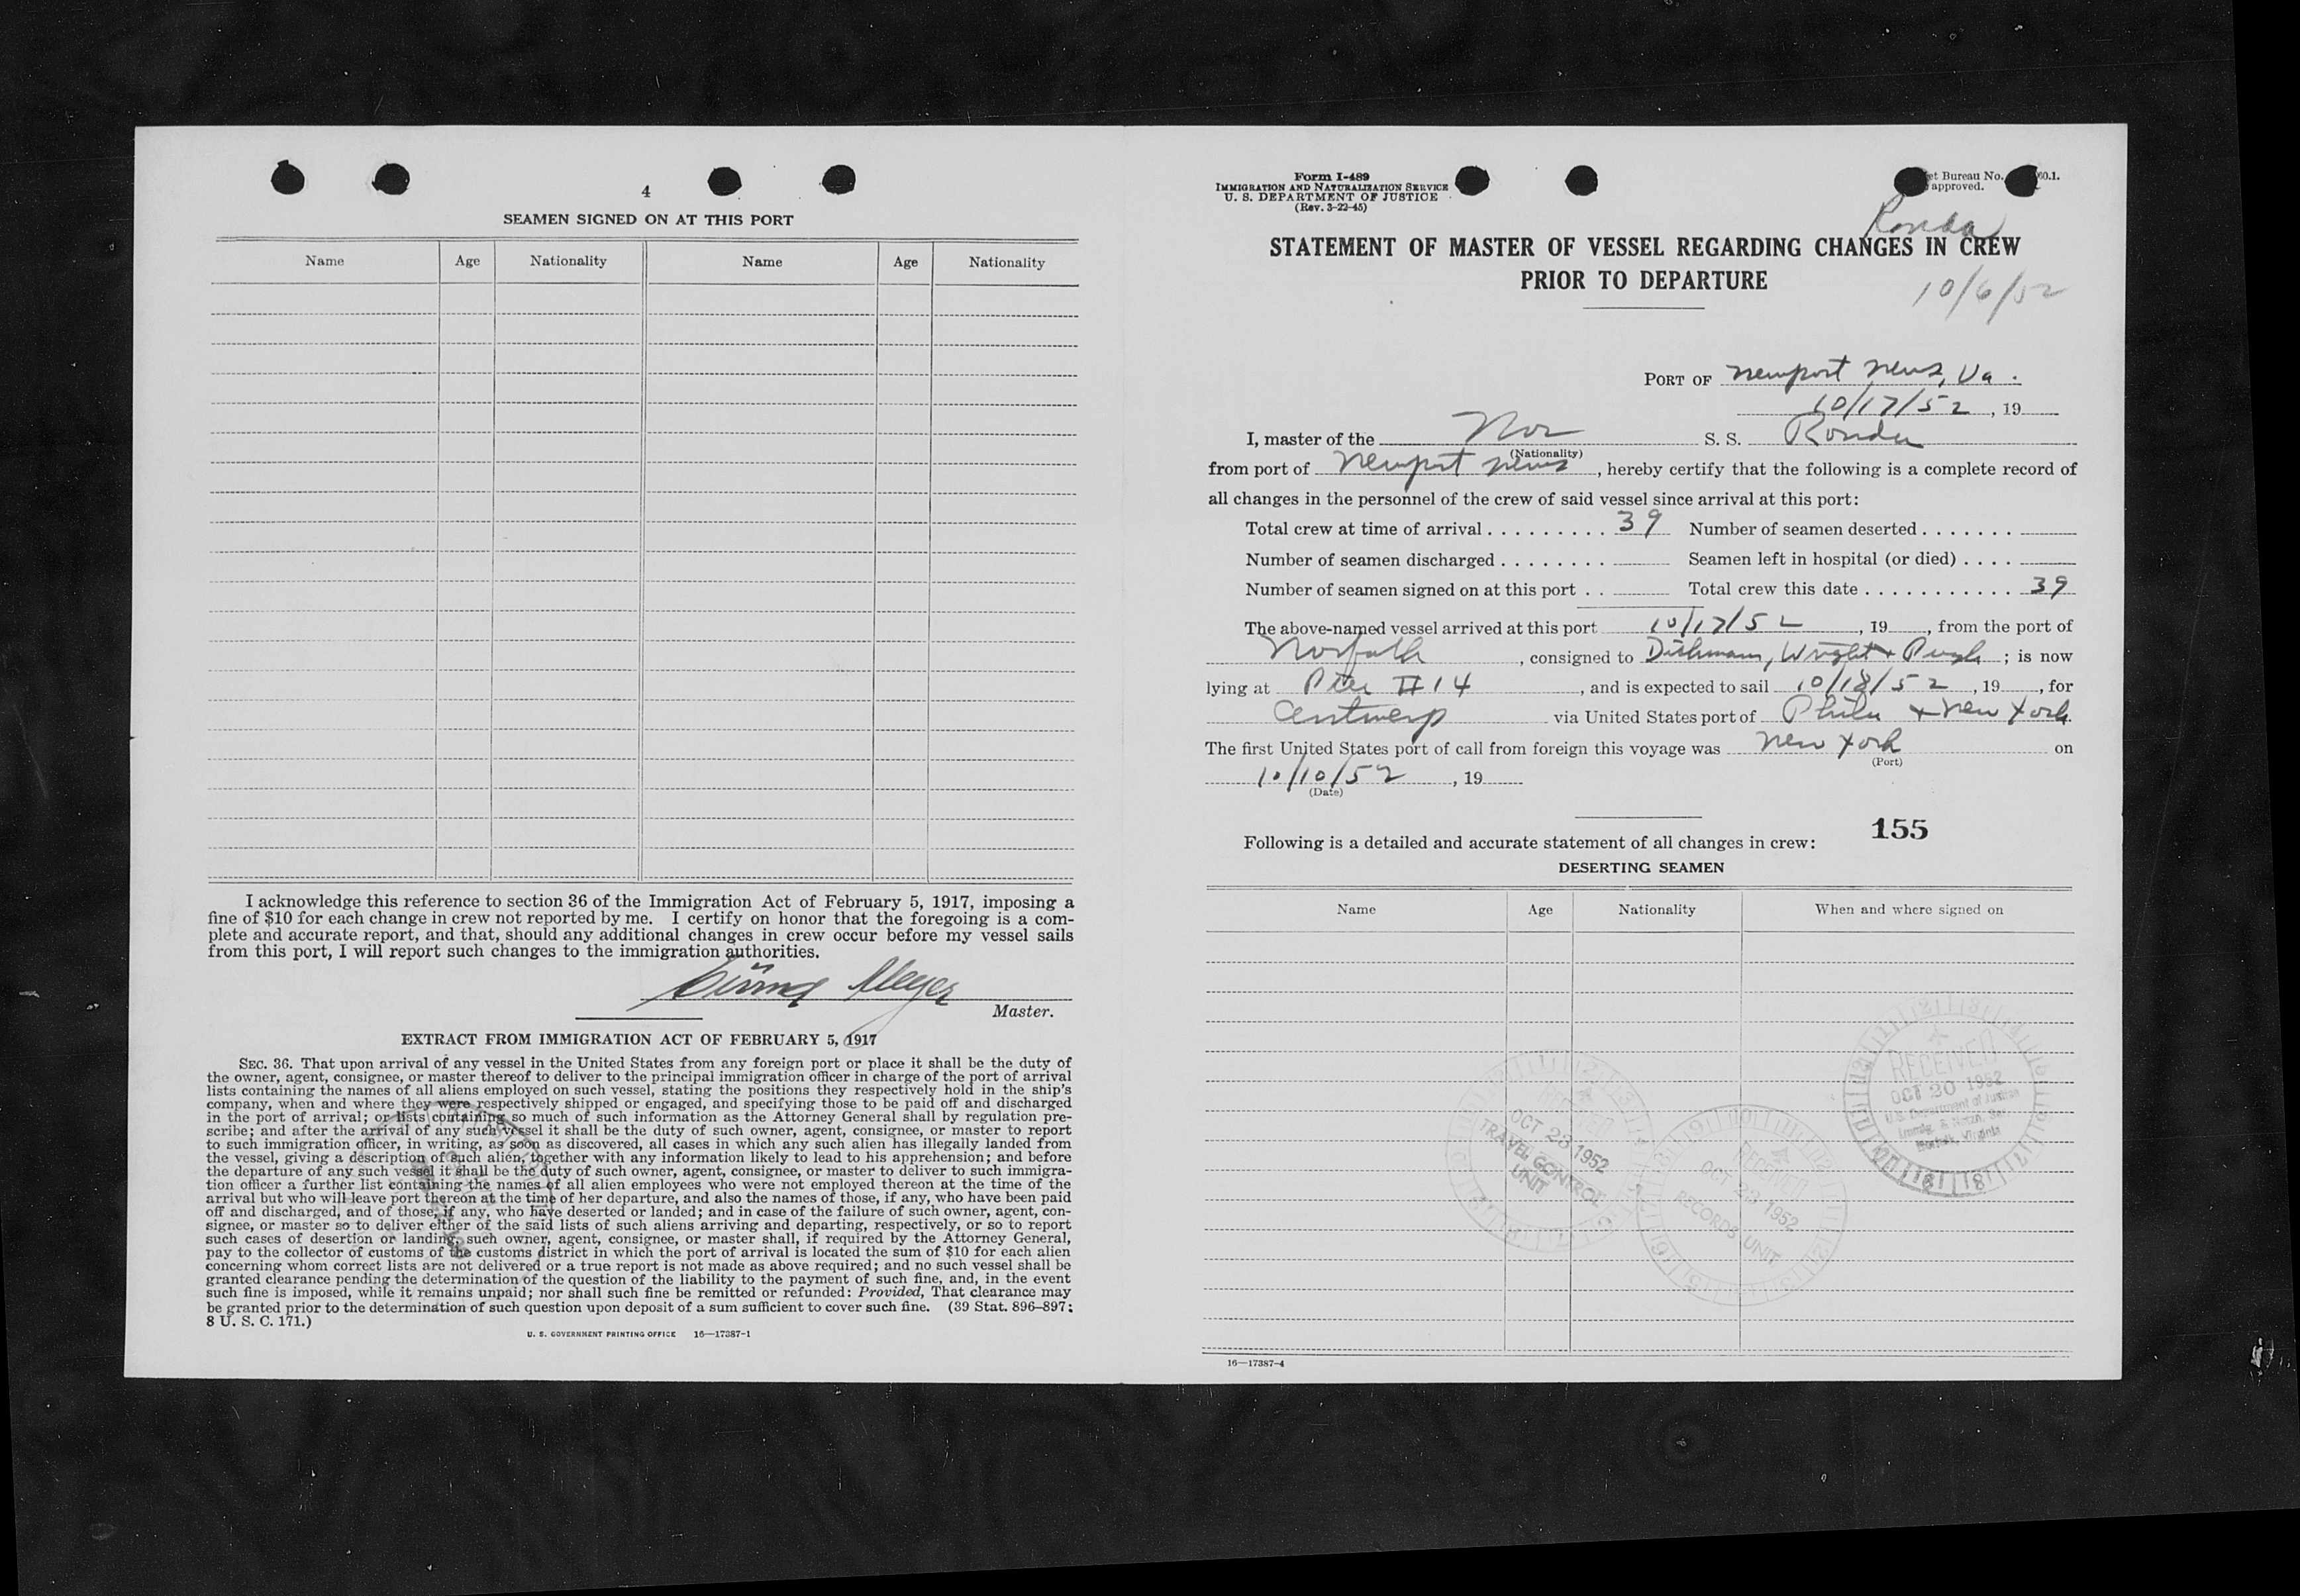 4
SEAMEN SIGNED ON AT THIS PORT
Name Age Nationality Name Age Nationality
I acknowledge this reference to section 36 of the Immigration Act of February 5, 1917, imposing a
fine of $10 for each change in crew not reported by me. I certify on honor that the foregoing is a com-
plete and accurate report, and that, should any additional changes in crew occur before my vessel sails
from this port, I will report such changes to the immigration authorities.
Meyer
Master.
EXTRACT FROM IMMIGRATION ACT OF FEBRUARY 5, 1917
SEC. 36. That upon arrival of any vessel in the United States from any foreign port or place it shall be the duty of
the owner, agent, consignee, or master thereof to deliver to the principal immigration officer in charge of the port of arrival
lists containing the names of all aliens employed on such vessel, stating the positions they respectively hold in the ship's
company, when and where they were respectively shipped or engaged, and specifying those to be paid off and discharged
in the port of arrival; or lists containing so much of such information as the Attorney General shall by regulation pre-
scribe; and after the arrival of any such vessel it shall be the duty of such owner, agent, consignee, or master to report
to such immigration officer, in writing, as soon as discovered, all cases in which any such alien has illegally landed from
the vessel, giving a description of such alien, together with any information likely to lead to his apprehension; and before
the departure of any such vessel it shall be the duty of such owner, agent, consignee, or master to deliver to such immigra-
tion officer a further list containing the names of all alien employees who were not employed thereon at the time of the
arrival but who will leave port thereon at the time of her departure, and also the names of those, if any, who have been paid
off and discharged, and of those, if any, who have deserted or landed; and in case of the failure of such owner, agent, con-
signee, or master so to deliver either of the said lists of such aliens arriving and departing, respectively, or so to report
such cases of desertion or landing, such owner, agent, consignee, or master shall, if required by the Attorney General,
pay to the collector of customs of the customs district in which the port of arrival is located the sum of $10 for each alien
concerning whom correct lists are not delivered or a true report is not made as above required; and no such vessel shall be
granted clearance pending the determination of the question of the liability to the payment of such fine, and, in the event
such fine is imposed, while it remains unpaid; nor shall such fine be remitted or refunded: Provided, That clearance may
be granted prior to the determination of such question upon deposit of a sum sufficient to cover such fine. (39 Stat. 896–897;
8 U. S. C. 171.)
U. S. GOVERNMENT PRINTING OFFICE 16—17387-1
Form I-489
IMMIGRATION AND NATURALIZATION SERVICE
U. S. DEPARTMENT OF JUSTICE
(Rev. 3-22-45)
et Bureau No. 60.1.
approved.
Ronda
STATEMENT OF MASTER OF VESSEL REGARDING CHANGES IN CREW
PRIOR TO DEPARTURE
10/6/52
PORT OF Newport News, Va.
10/17/52, 19
I, master of the Nor S. S. Ronda
(Nationality)
from port of Newport News, hereby certify that the following is a complete record of
all changes in the personnel of the crew of said vessel since arrival at this port:
Total crew at time of arrival . . . . . . . . . 39 Number of seamen deserted . . . . . . .
Number of seamen discharged . . . . . . . . Seamen left in hospital (or died) . . . .
Number of seamen signed on at this port . . Total crew this date . . . . . . . . . . . 39
The above-named vessel arrived at this port 10/17/52, 19, from the port of
Norfolk, consigned to Dichmann, Wright & Pugh; is now
lying at Pier #14, and is expected to sail 10/18/52, 19, for
Antwerp via United States port of Phila + New York
The first United States port of call from foreign this voyage was New York on
(Port)
10/10/52, 19
(Date)
155
Following is a detailed and accurate statement of all changes in crew:
DESERTING SEAMEN
Name Age Nationality When and where signed on
RECEIVED
OCT 20 1952
U.S. Department of Justice
Immig. & Natz. Ser.
Norfolk, Virginia
RECEIVED
OCT 23 1952
TRAVEL CONTROL
UNIT
RECEIVED
OCT 23 1952
RECORDS UNIT
16—17387-4